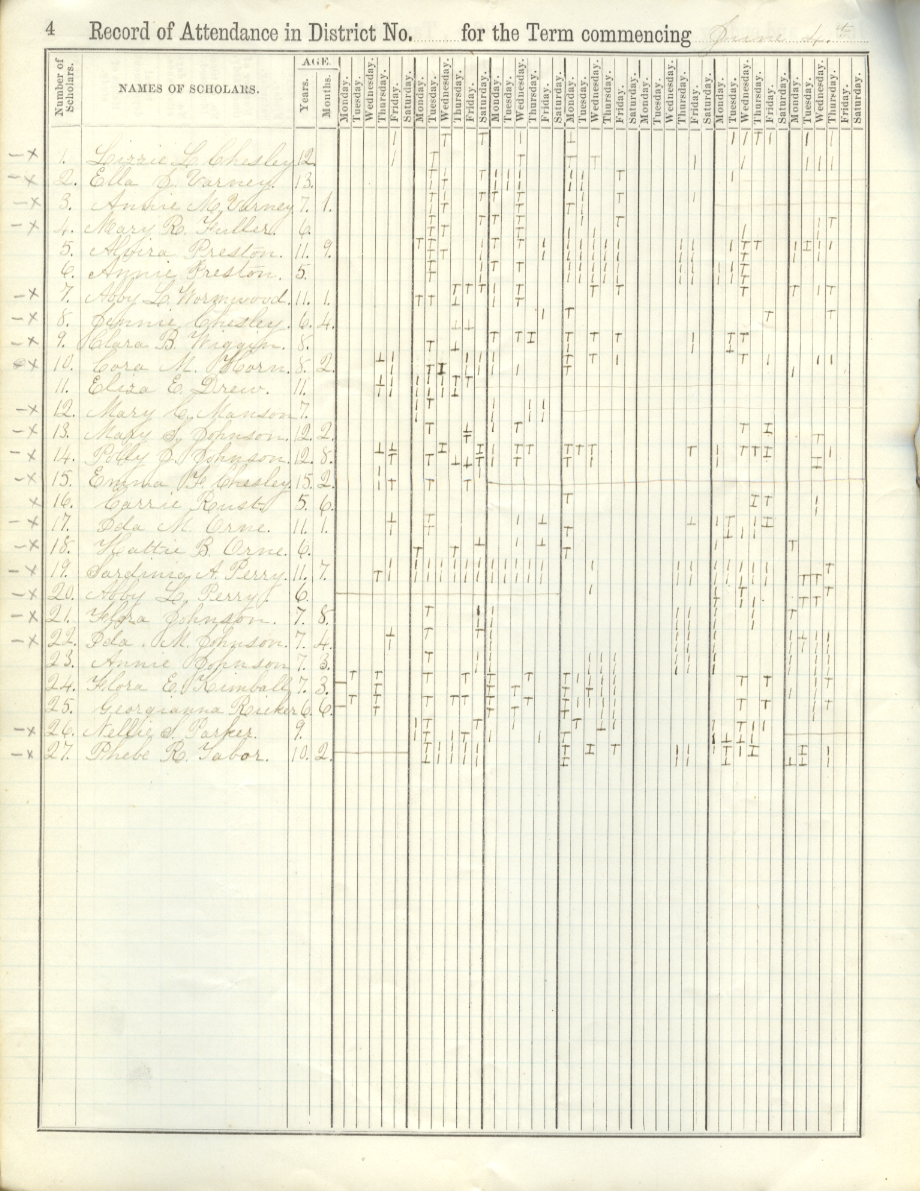 4 Record of Attendance in District No. for the Term commencing June 4.th
Number of Scholars. NAMES OF SCHOLARS. AGE. Years. Months. Monday. Tuesday. Wednesday. Thursday. Friday. Saturday. Monday. Tuesday. Wednesday. Thursday. Friday. Saturday. Monday. Tuesday. Wednesday. Thursday. Friday. Saturday. Monday. Tuesday. Wednesday. Thursday. Friday. Saturday. Monday. Tuesday. Wednesday. Thursday. Friday. Saturday. Monday. Tuesday. Wednesday. Thursday. Friday. Saturday. Monday. Tuesday. Wednesday. Thursday. Friday. Saturday.
– x 1. Lizzie L. Chesley 12.
– x 2. Ella S. Varney. 13.
– x 3. Annie M. Varney 7. 1.
– x 4. Mary R. Fuller. 6.
5. Alvira Preston. 11. 9.
6. Annie Preston. 5.
– x 7. Abby L. Wormwood. 11. 1.
– x 8. Jennie Chesley. 6. 4.
– x 9. Clara B. Wiggin. 8.
x 10. Cora M. Horn. 8. 2.
11. Eliza E. Drew. 11.
– x 12. Mary C. Manson 7.
– x 13. Mary S. Johnson. 12. 2.
– x 14. Polly J. Johnson. 12. 8.
– x 15. Emma F. Chesley. 15. 2.
x 16. Carrie Rust. 5. 6.
– x 17. Ida M. Orne. 11. 1.
– x 18. Hattie B. Orne. 6.
– x 19. Sardinia A. Perry. 11. 7.
– x 20. Abby L. Perry. 6.
– x 21. Flora Johnson. 7. 8.
– x 22. Ida. M. Johnson. 7. 4.
23. Annie Johnson 7. 3.
24. Flora E. Kimball 7. 3.
25. Georgianna Ricker 6. 6.
– x 26. Nellie S. Parker. 9.
– x 27. Phebe R. Tabor. 10. 2.